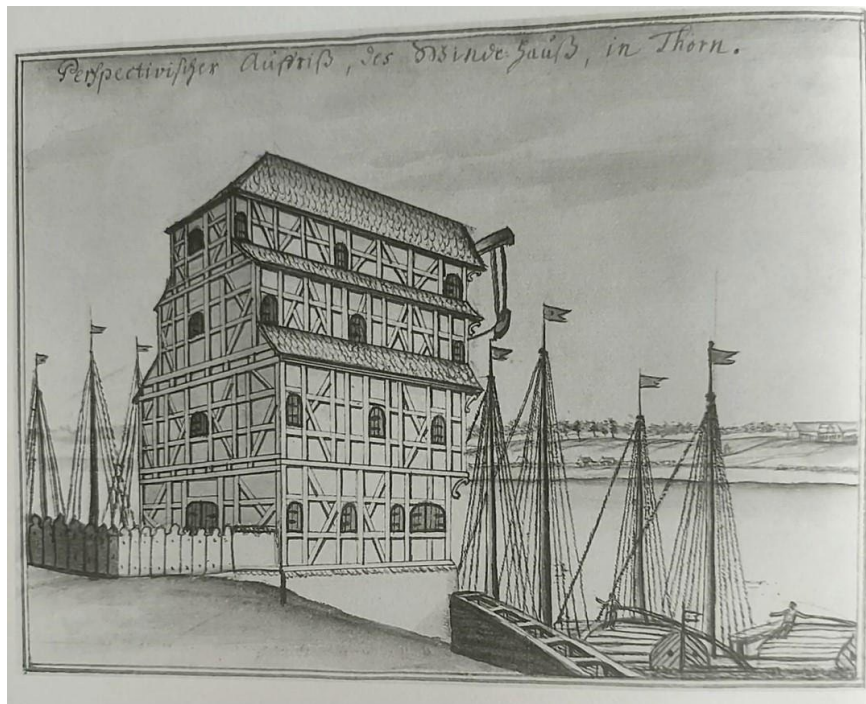 Perspectivischer Aufriß, des Winde-Hauß, in Thorn.